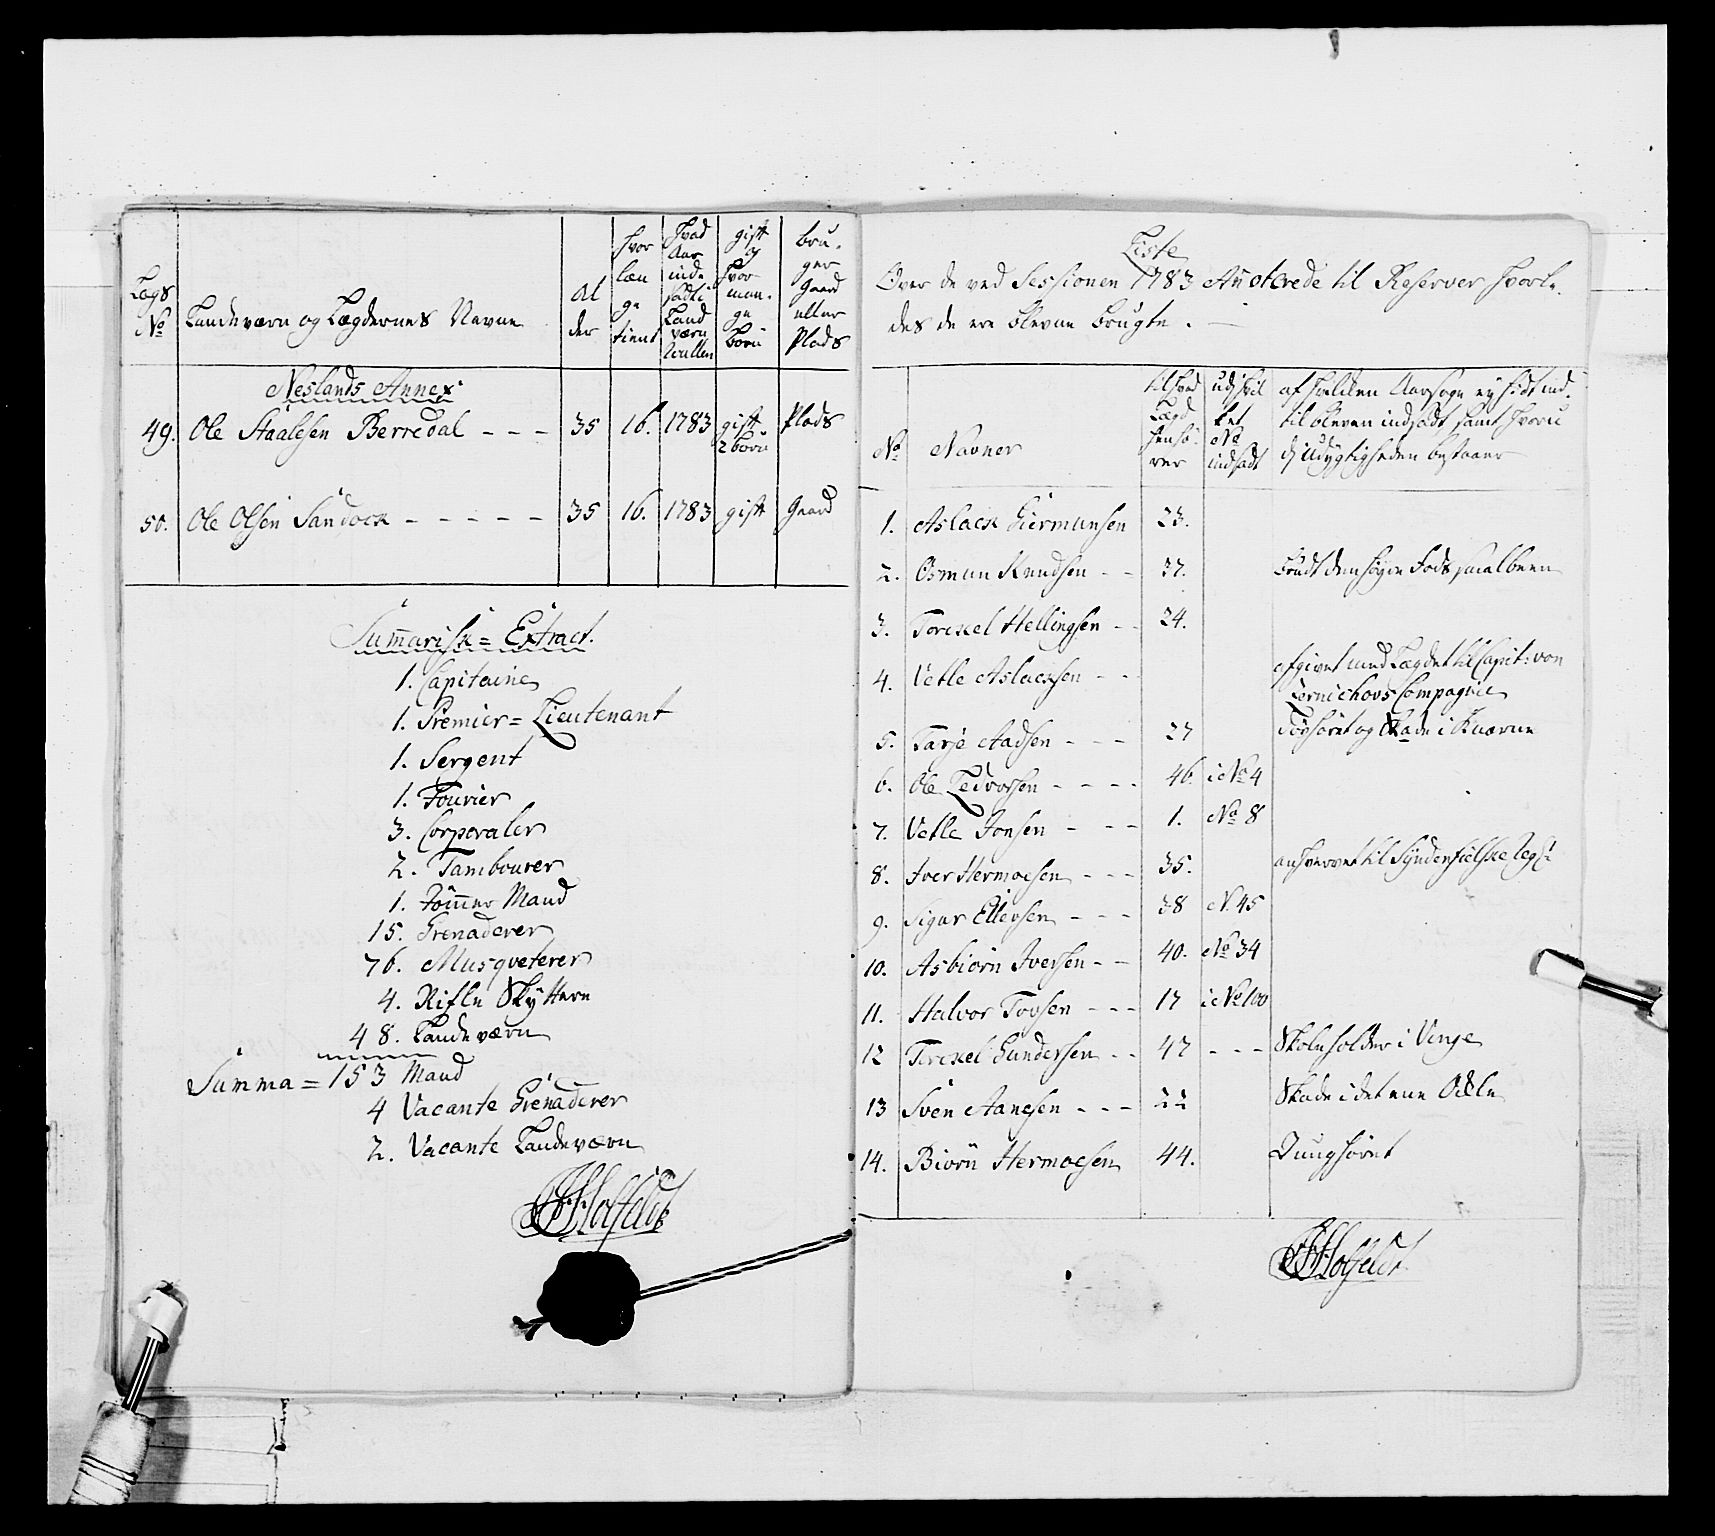 Lægs No
Landeværn og Lægdernes Navne
Al der
hvor læn ge tient
hvad Aar inds satt i Land værn Rullen
gift og hvor man- ge børn
bru- ger Gaard eller Plads
Neslands Annex
49. Ole Staalesen Berredal - - - 35 16. 1783 gift 2 børn Plads
50. Ole Olsen Sandock - - - - - 35 16. 1783 gift Gaard
Sum̅arisk = Extract.
1. Capitaine
1. Premier = Lieutenant
1. Sergent
1. Fourier
3. Corporaler
2. Tambourer
1. Töm̅er Mand
15. Grenaderer
76. Musqveterer
4. Rifle Skÿttere
48. Landeværn
Summa = 153 Mand
4 Vacante Grenaderer
2. Vacante Landeværn
Holfeldt
Liste
Over de ved Sessionen 1783 Anoterede til Reserver hvorle-
des de ere blevne brugte. —
No
Navner
til hvad Lægd henhø- rer
udj hvil ket No indsadt
af hvilken Aarsage ey hidt ind-
til bleven indsadt samt hvori
dj Udygtigheden bestaaer
1. Aslack Giermunsen 23.
2. Osmun Knudsen - - 37. brudt den høyre Fods smalbeen
3. Torckel Hellingsen - - 24.
4. Vetle Aslacksen - - afgivet med Lægdet til Capit: von
Compagnie
5. Tarje Aadsen - - - 27 Tÿhøret og Skade i Knæerne
6. Ole Tedvorsen - - - - 46. i No 4
7. Vetle Jonsen - - - 1. No 8
8. Iver Hermoesen - - - 35. anhvervet til Sÿndenfielske Reg:t
9. Sigur Ellevsen - - - 38 N. 45
10. Asbiørn Iversen - - 40. No 34
11. Halvor Tovsen - - - 17 i No 100
12 Torckel Gundersen - - 47 - - - Skoleholder i Vinje
13 Sven Aanesen - - - 22 Skade i det ene
14. Biørn Hermoesen 44. Tunghøret
Holfeldt